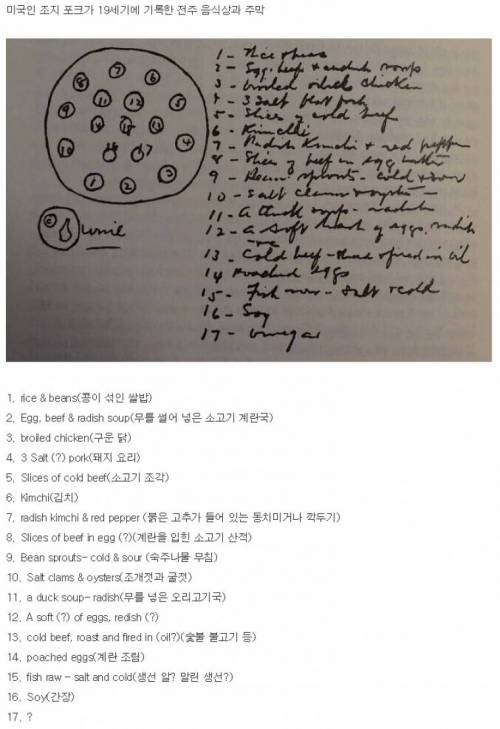 미국인 조지 포크가 19세기에 기록한 전주 음식상과 주막
7
8 6
9 11 12 5
14 15 13
10 16 17 4
1 2 3
wine
1 – Rice & beans
2 – Egg, beef & radish soup
3 – broiled chicken
4 – 3 Salt pork
5 – Slices of cold beef
6 – Kimchi
7 – Radish Kimchi & red pepper
8 – Slices of beef in egg batter
9 – Bean sprouts – cold & sour
10 – Salt clams & oysters –
11 – A duck soup – radish
12 – A soft of eggs, radish
13 – Cold beef – fried in oil
14 Poached eggs
15 – Fish raw – salt & cold
16 – Soy
17 – Vinegar
1. rice & beans(콩이 섞인 쌀밥)
2. Egg, beef & radish soup(무를 썰어 넣은 소고기 계란국)
3. broiled chicken(구운 닭)
4. 3 Salt (?) pork(돼지 요리)
5. Slices of cold beef(소고기 조각)
6. Kimchi(김치)
7. radish kimchi & red pepper (붉은 고추가 들어 있는 동치미거나 깍두기)
8. Slices of beef in egg (?)(계란을 입힌 소고기 산적)
9. Bean sprouts- cold & sour (숙주나물 무침)
10. Salt clams & oysters(조개젓과 굴젓)
11. a duck soup- radish(무를 넣은 오리고기국)
12. A soft (?) of eggs, redish (?)
13. cold beef, roast and fired in (oil?)(숯불 불고기 등)
14. poached eggs(계란 조림)
15. fish raw - salt and cold(생선 알? 말린 생선?)
16. Soy(간장)
17. ?